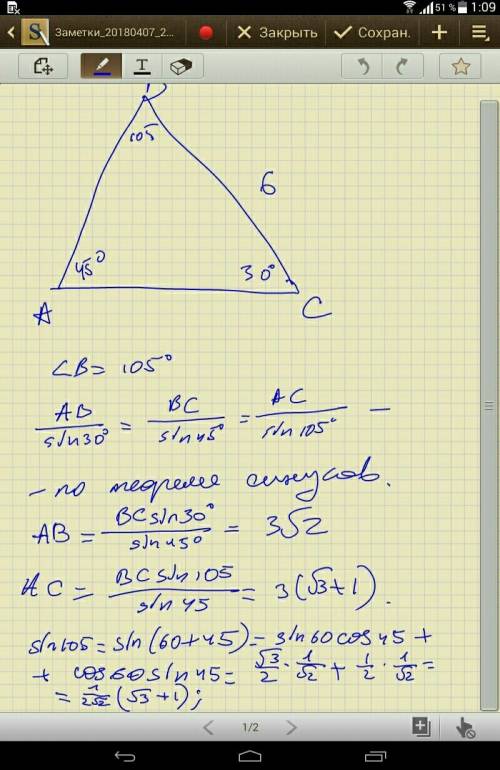 51 % 1:09
Заметки_20180407_2... Закрыть Сохран.
105
6
45°
30°
A
C
∠B = 105°
AB/sin30° = BC/sin45° = AC/sin105° —
– по теореме синусов.
AB = BCsin30°/sin45° = 3√2
AC = BCsin105/sin45 = 3(√3+1).
sin105 = sin(60+45) = sin60cos45 +
+ cos60sin45 = √3/2 · 1/√2 + 1/2 · 1/√2 =
= 1/2√2 (√3+1);
1/2